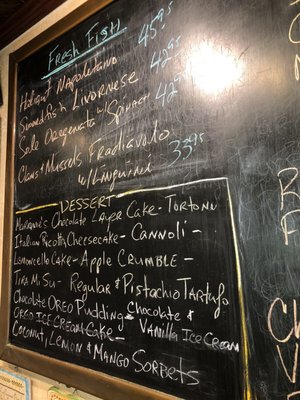 FRESH FISH
Halibut Napoletano 45.95
Swordfish Livornese 42.95
Sole Oreganata w/ Spinach 42.95
Clams & Mussels Fradiavolo
w/ Linguini 33.95
DESSERT
Chocolate Layer Cake - TORTONI
Italian Ricotta Cheesecake - CANNOLI -
LEMONCELLO CAKE - APPLE CRUMBLE -
TIRA MI SU - REGULAR & PISTACHIO TARTUFO
CHOCOLATE OREO PUDDING - CHOCOLATE &
OREO ICE CREAM CAKE - VANILLA ICE CREAM
COCONUT, LEMON & MANGO SORBETS